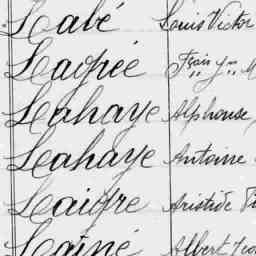 Labé Louis Victor
Lagrée Fçois J⁼
Lahaye Alphonse,
Lahaye Antoine
Laigre Aristide
Laîné Albert